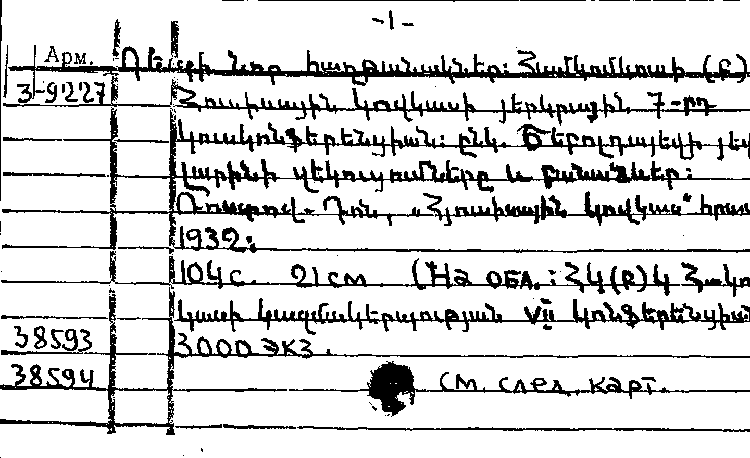 -1-
Арм. Դեպի նոր հաղթանակներ: Համկոմկուսի (բ)
3-9227 Հյուսիսային կովկասի յերկրային 7-րդ
կուսկոնֆերենցիան: ընկ. Շեբոլդայեվի յեվ
Լարինի զեկուցումները և բանաձևեր:
Ռոստով-Դոն, „Հյուսիսային կովկաս“ հրատ
1932:
104 с. 21 см. (На обл.: ՀԿ(բ)Կ
կասի կազմակերպության VII կոնֆերենցիան
38593 3000 экз.
38594 см. след. карт.